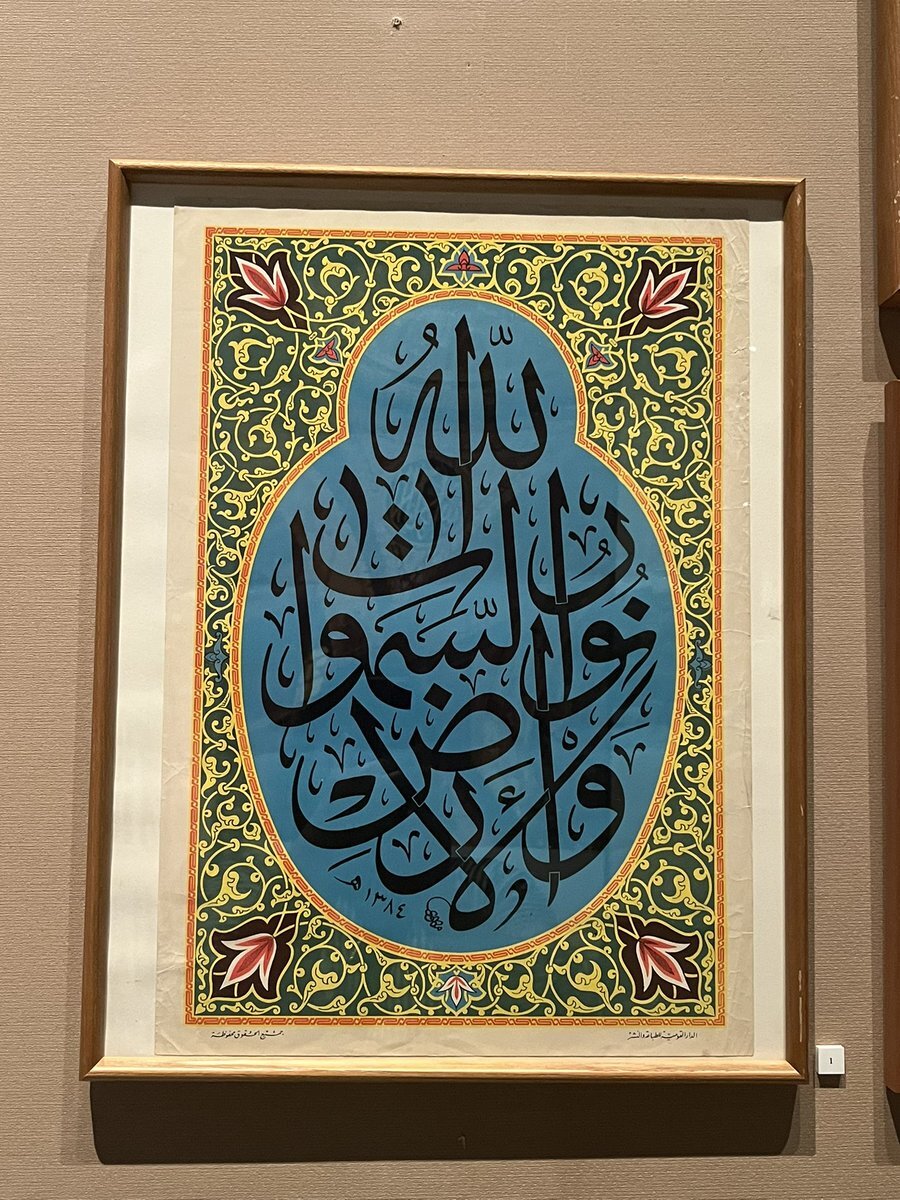 اللّهُ نُورُ السَّمَوَاتِ وَالْأَرْضِ
١٣٨٤ هـ
الدار القومية للطباعة والنشر
جميع الحقوق محفوظة
1